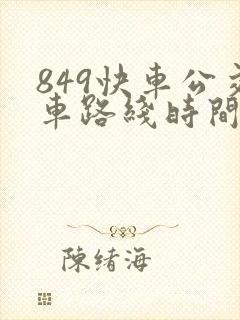 849快車公交
車路綫時間
陳緒海